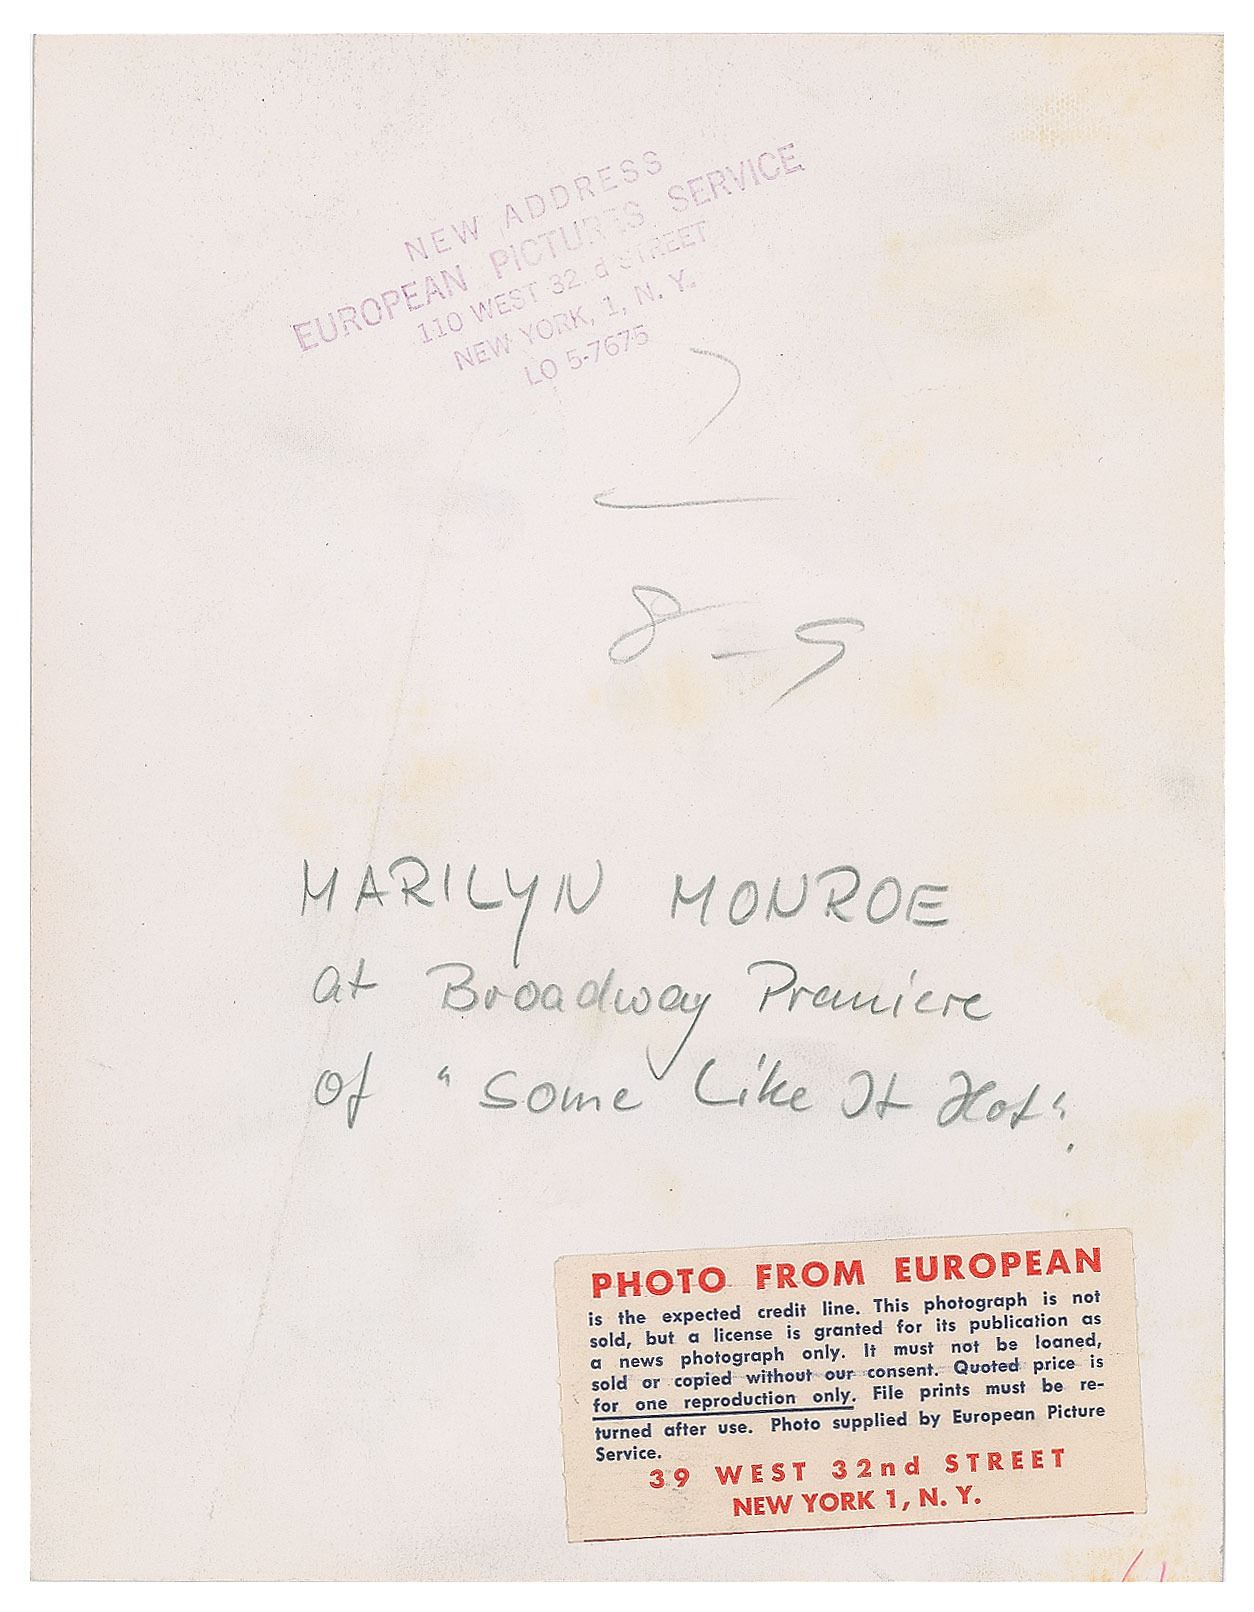 NEW ADDRESS
EUROPEAN PICTURES SERVICE
110 WEST 32 d STREET
NEW YORK, 1, N. Y.
LO 5-7675
8 - 9
MARILYN MONROE
at Broadway Premiere
of "Some Like It Hot".
PHOTO FROM EUROPEAN
is the expected credit line. This photograph is not
sold, but a license is granted for its publication as
a news photograph only. It must not be loaned,
sold or copied without our consent. Quoted price is
for one reproduction only. File prints must be re-
turned after use. Photo supplied by European Picture
Service.
39 WEST 32nd STREET
NEW YORK 1, N. Y.